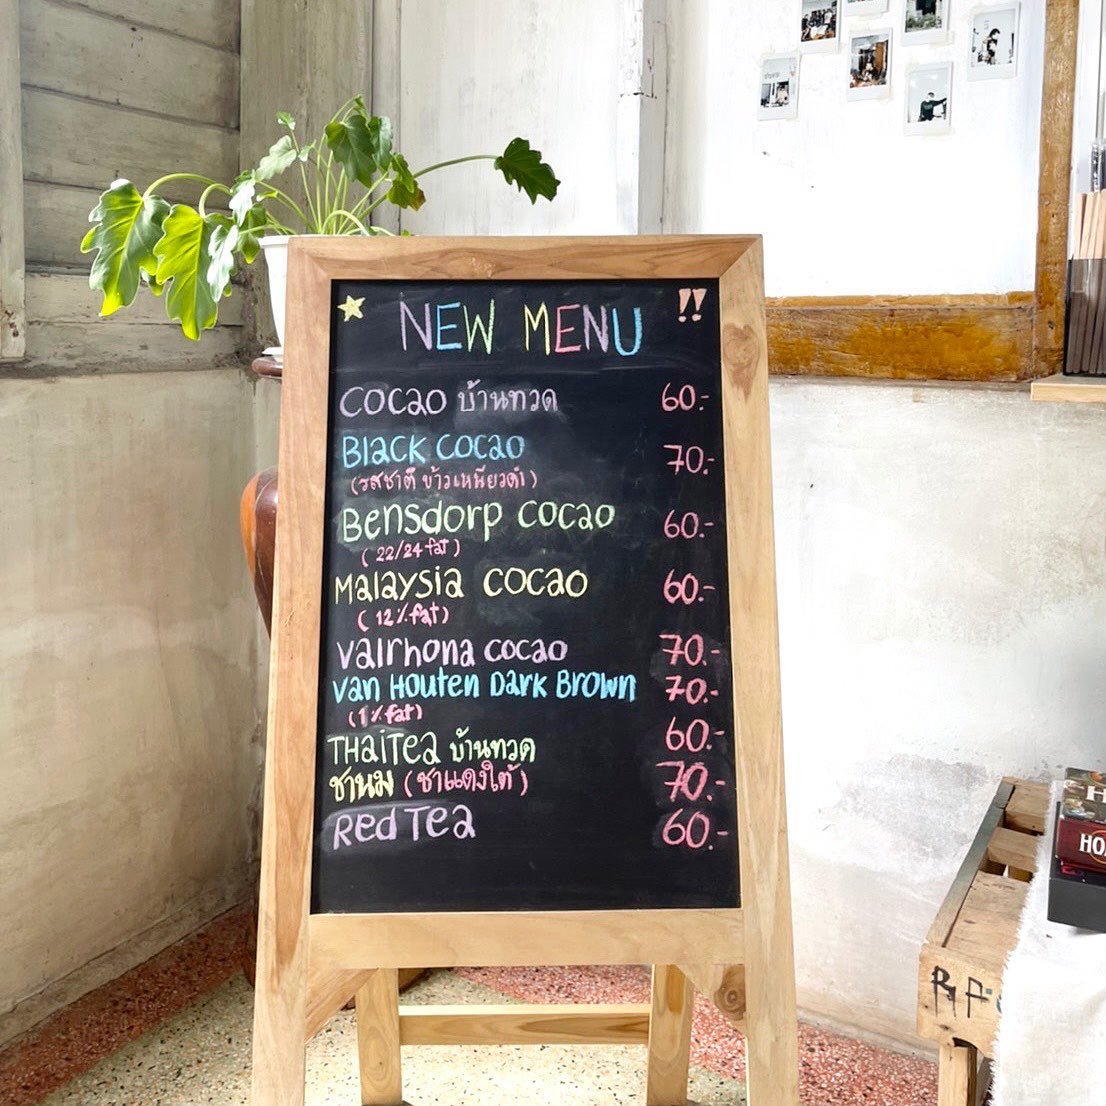 NEW MENU !!
COCAO บ้านทวด 60.-
BLACK COCAO 70.-
(รสชาติ ข้าวเหนียวดำ)
Bensdorp COCAO 60.-
(22/24 fat)
MALAYSIA COCAO 60.-
(12% fat)
Valrhona COCAO 70.-
Van Houten Dark Brown 70.-
(1% fat)
THAITEA บ้านทวด 60.-
ชานม (ชาแดงใต้) 70.-
Red Tea 60.-